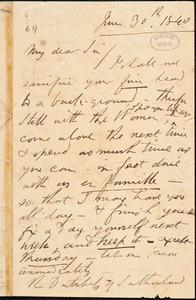 64
June 30th 1840
My dear Sir
I shall not
sacrifice your fine head
to a back-ground, therefore
still with the Women,
come alone the next time
& spend as much time as
you can - in fact dine
with us en famille -
so that I may have you
all day - & finish you
fix a day yourself next
week, and keep it - except
Thursday - let me know
immediately
The Dutchess of Sutherland